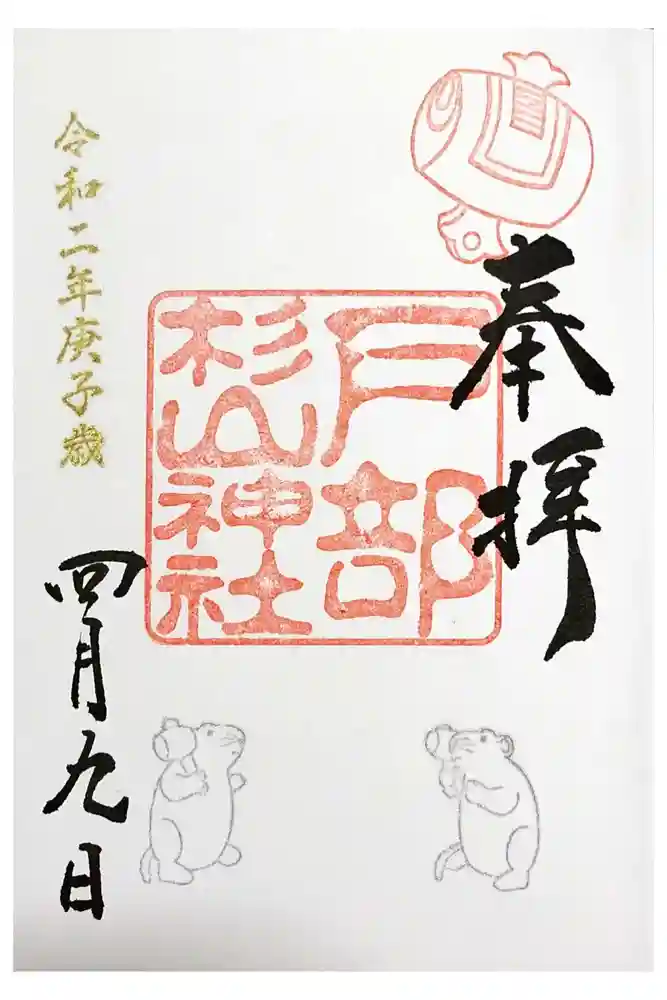 奉拝
戸部
杉山神社
令和二年庚子歳
四月九日